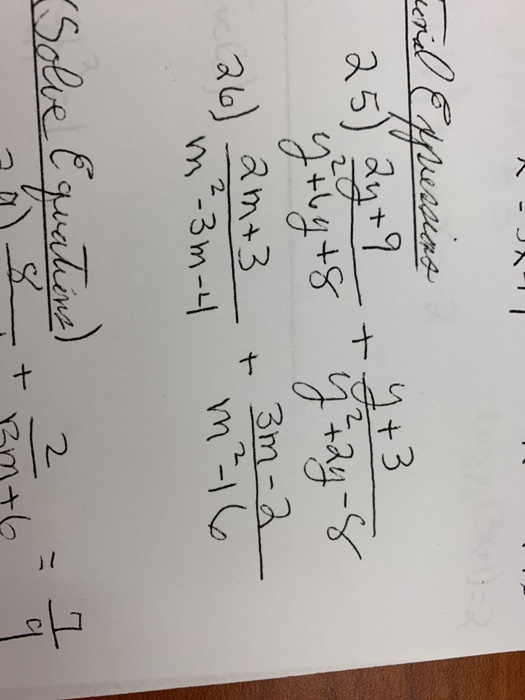 Expressions
25) (2y+9)/(y²+6y+8) + (y+3)/(y²+2y-8)
26) (2m+3)/(m²-3m-4) + (3m-2)/(m²-16)
(Solve Equations)
8 + 2/(3m+6) =